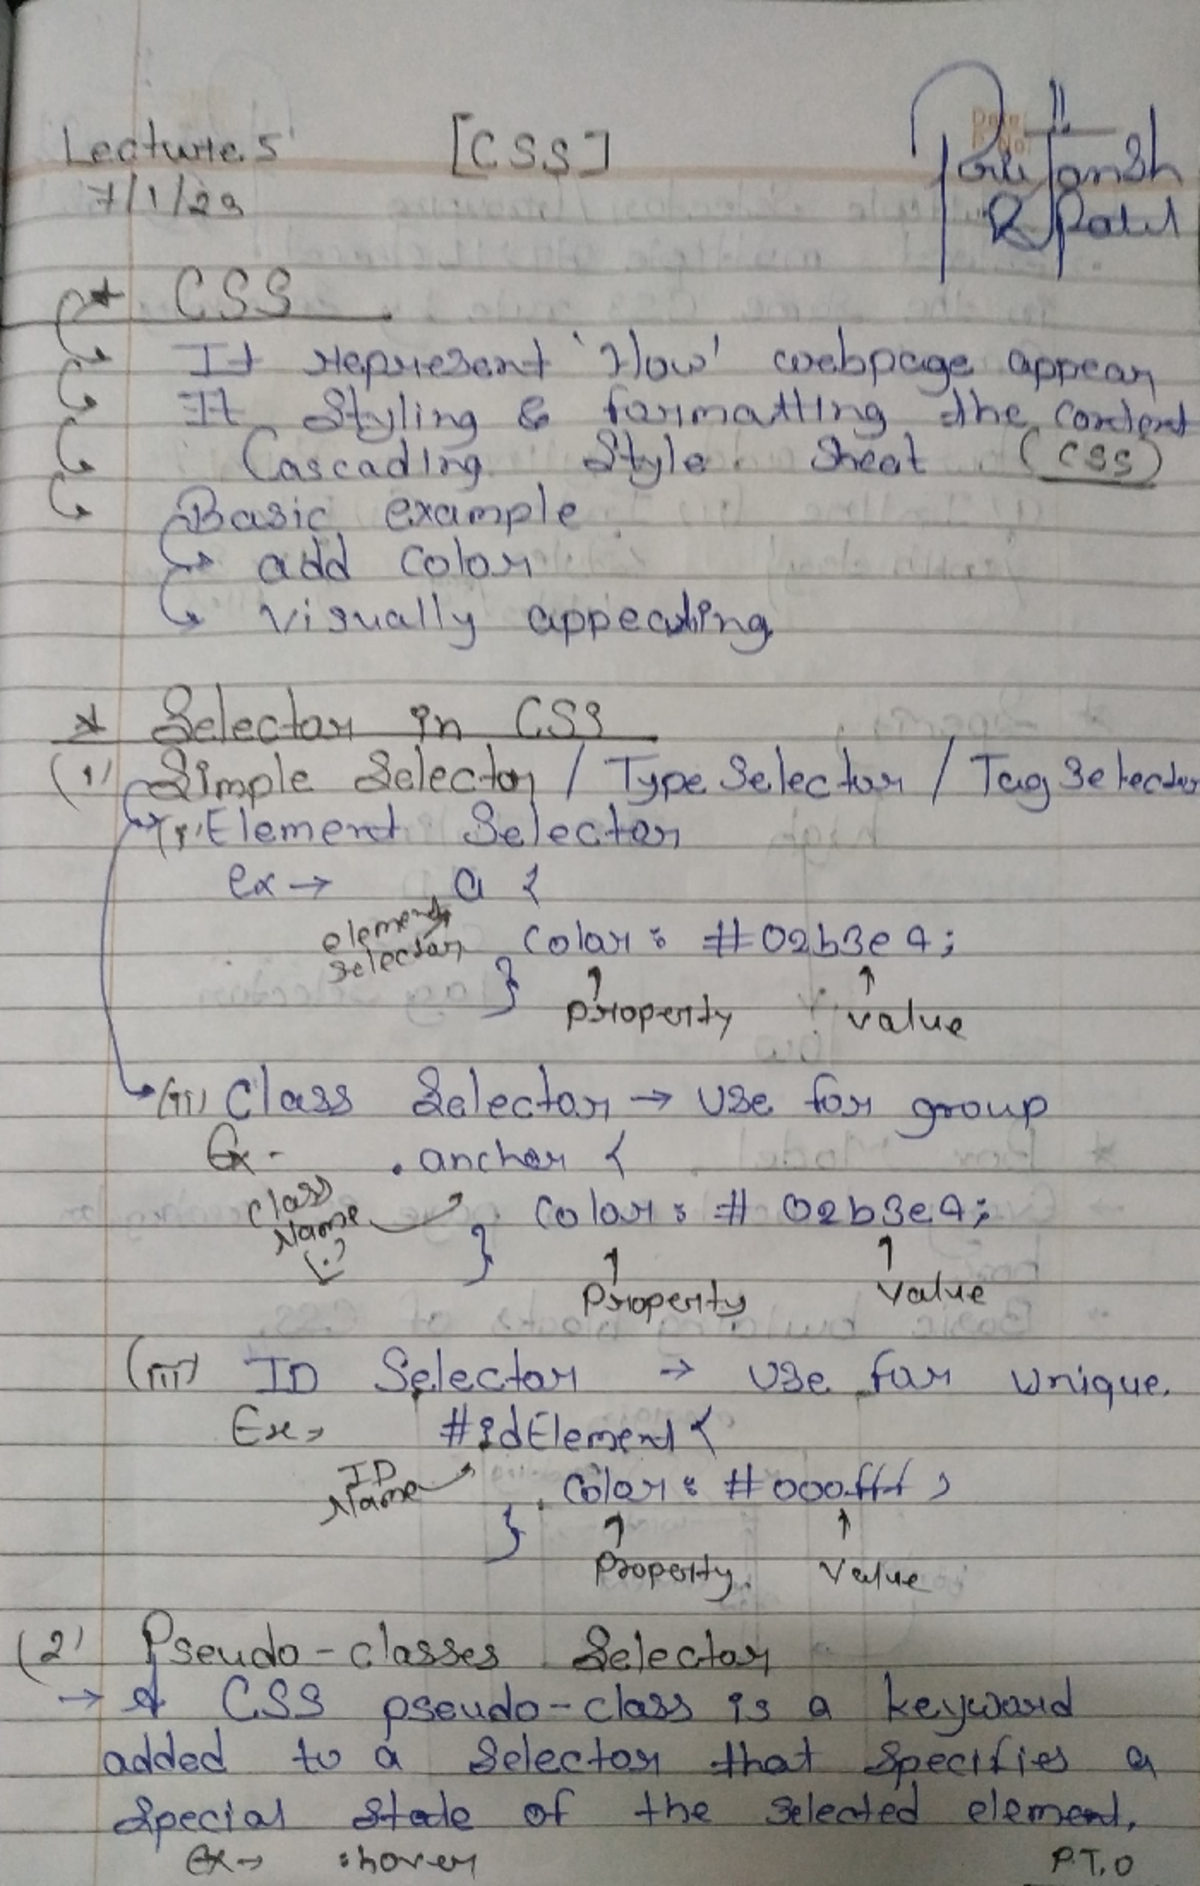 Lecture.5 [CSS]
7/1/23
R Patel
* CSS
It represent 'How' webpage appear
It Styling & formatting the content
Cascading Style Sheet (CSS)
Basic example
add color
visually appealing
* Selector in CSS
(1) Simple Selector / Type Selector / Tag Selector
(i) Element Selector
ex → a {
element selector
color : #02b3e4;
}
Property value
(ii) Class Selector → Use for group
Ex - .anchor {
Class Name (.)
color : # 02b3e4;
}
Property value
(iii) ID Selector → Use for unique.
Ex → #idElement {
ID Name
color : #000fff ;
}
Property. Value
(2) Pseudo-classes Selector
→ A CSS pseudo-class is a keyword
added to a selector that specifies a
special state of the selected element.
ex → :hover P.T.O